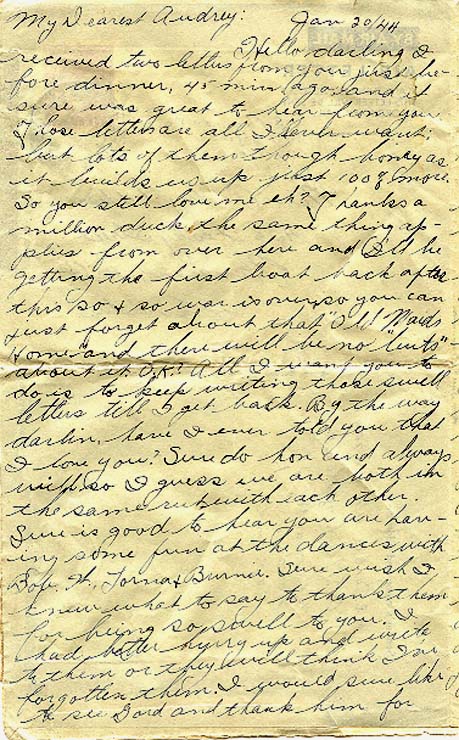 My Dearest Audrey: Jan 20/44
Hello darling I
received two letters from you just be-
fore dinner, 45 min ago, and it
sure was great to hear from you.
Those letters are all I ever want;
but lots of them though honey as
it builds us up just 100% more.
So you still love me eh? Thanks a
million duck the same thing ap-
plies from over here and I'll be
getting the first boat back after
this so & so war is over, so you can
just forget about that "Old Maids
Home" and there will be no "buts"
about it O.K.? All I want you to
do is to keep writing those swell
letters till I get back. By the way
darlin, have I ever told you that
I love you? Sure do hon and always
will, so I guess we are both in
the same rut with each other.
Sure is good to hear you are hav-
ing some fun at the dances with
Bob. H, Lorna & Burnie. Sure wish I
knew what to say to thank them
for being so swell to you. I
had better hurry up and write
to them or they will think I've
forgotten them. I would sure like
to see Gord and thank him for